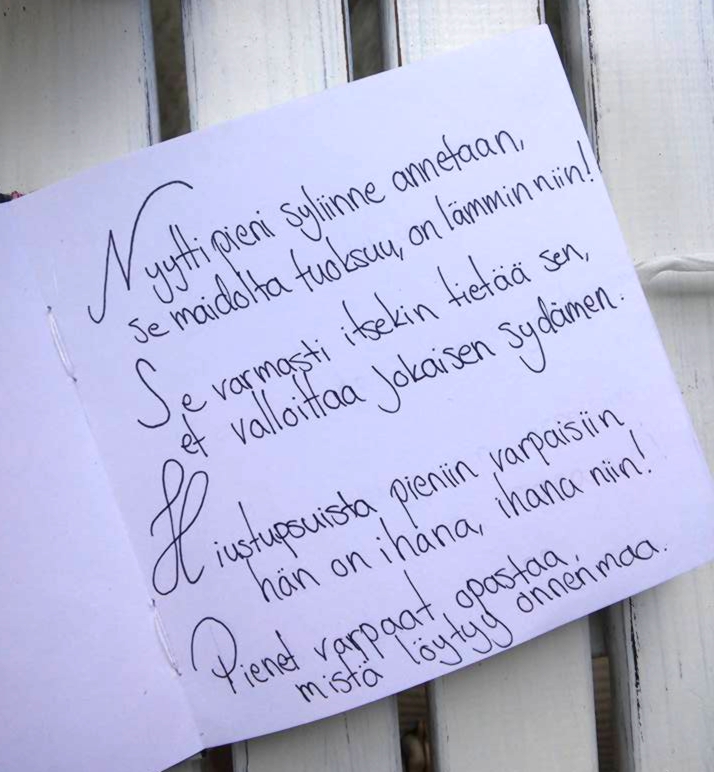 Nyytti pieni syliinne annetaan,
se maidolta tuoksuu, on lämmin niin!
Se varmasti itsekin tietää sen,
et valloittaa jokaisen sydämen.
Hiustupsuista pieniin varpaisiin
hän on ihana, ihana niin!
Pienet varpaat opastaa,
mistä löytyy onnenmaa.